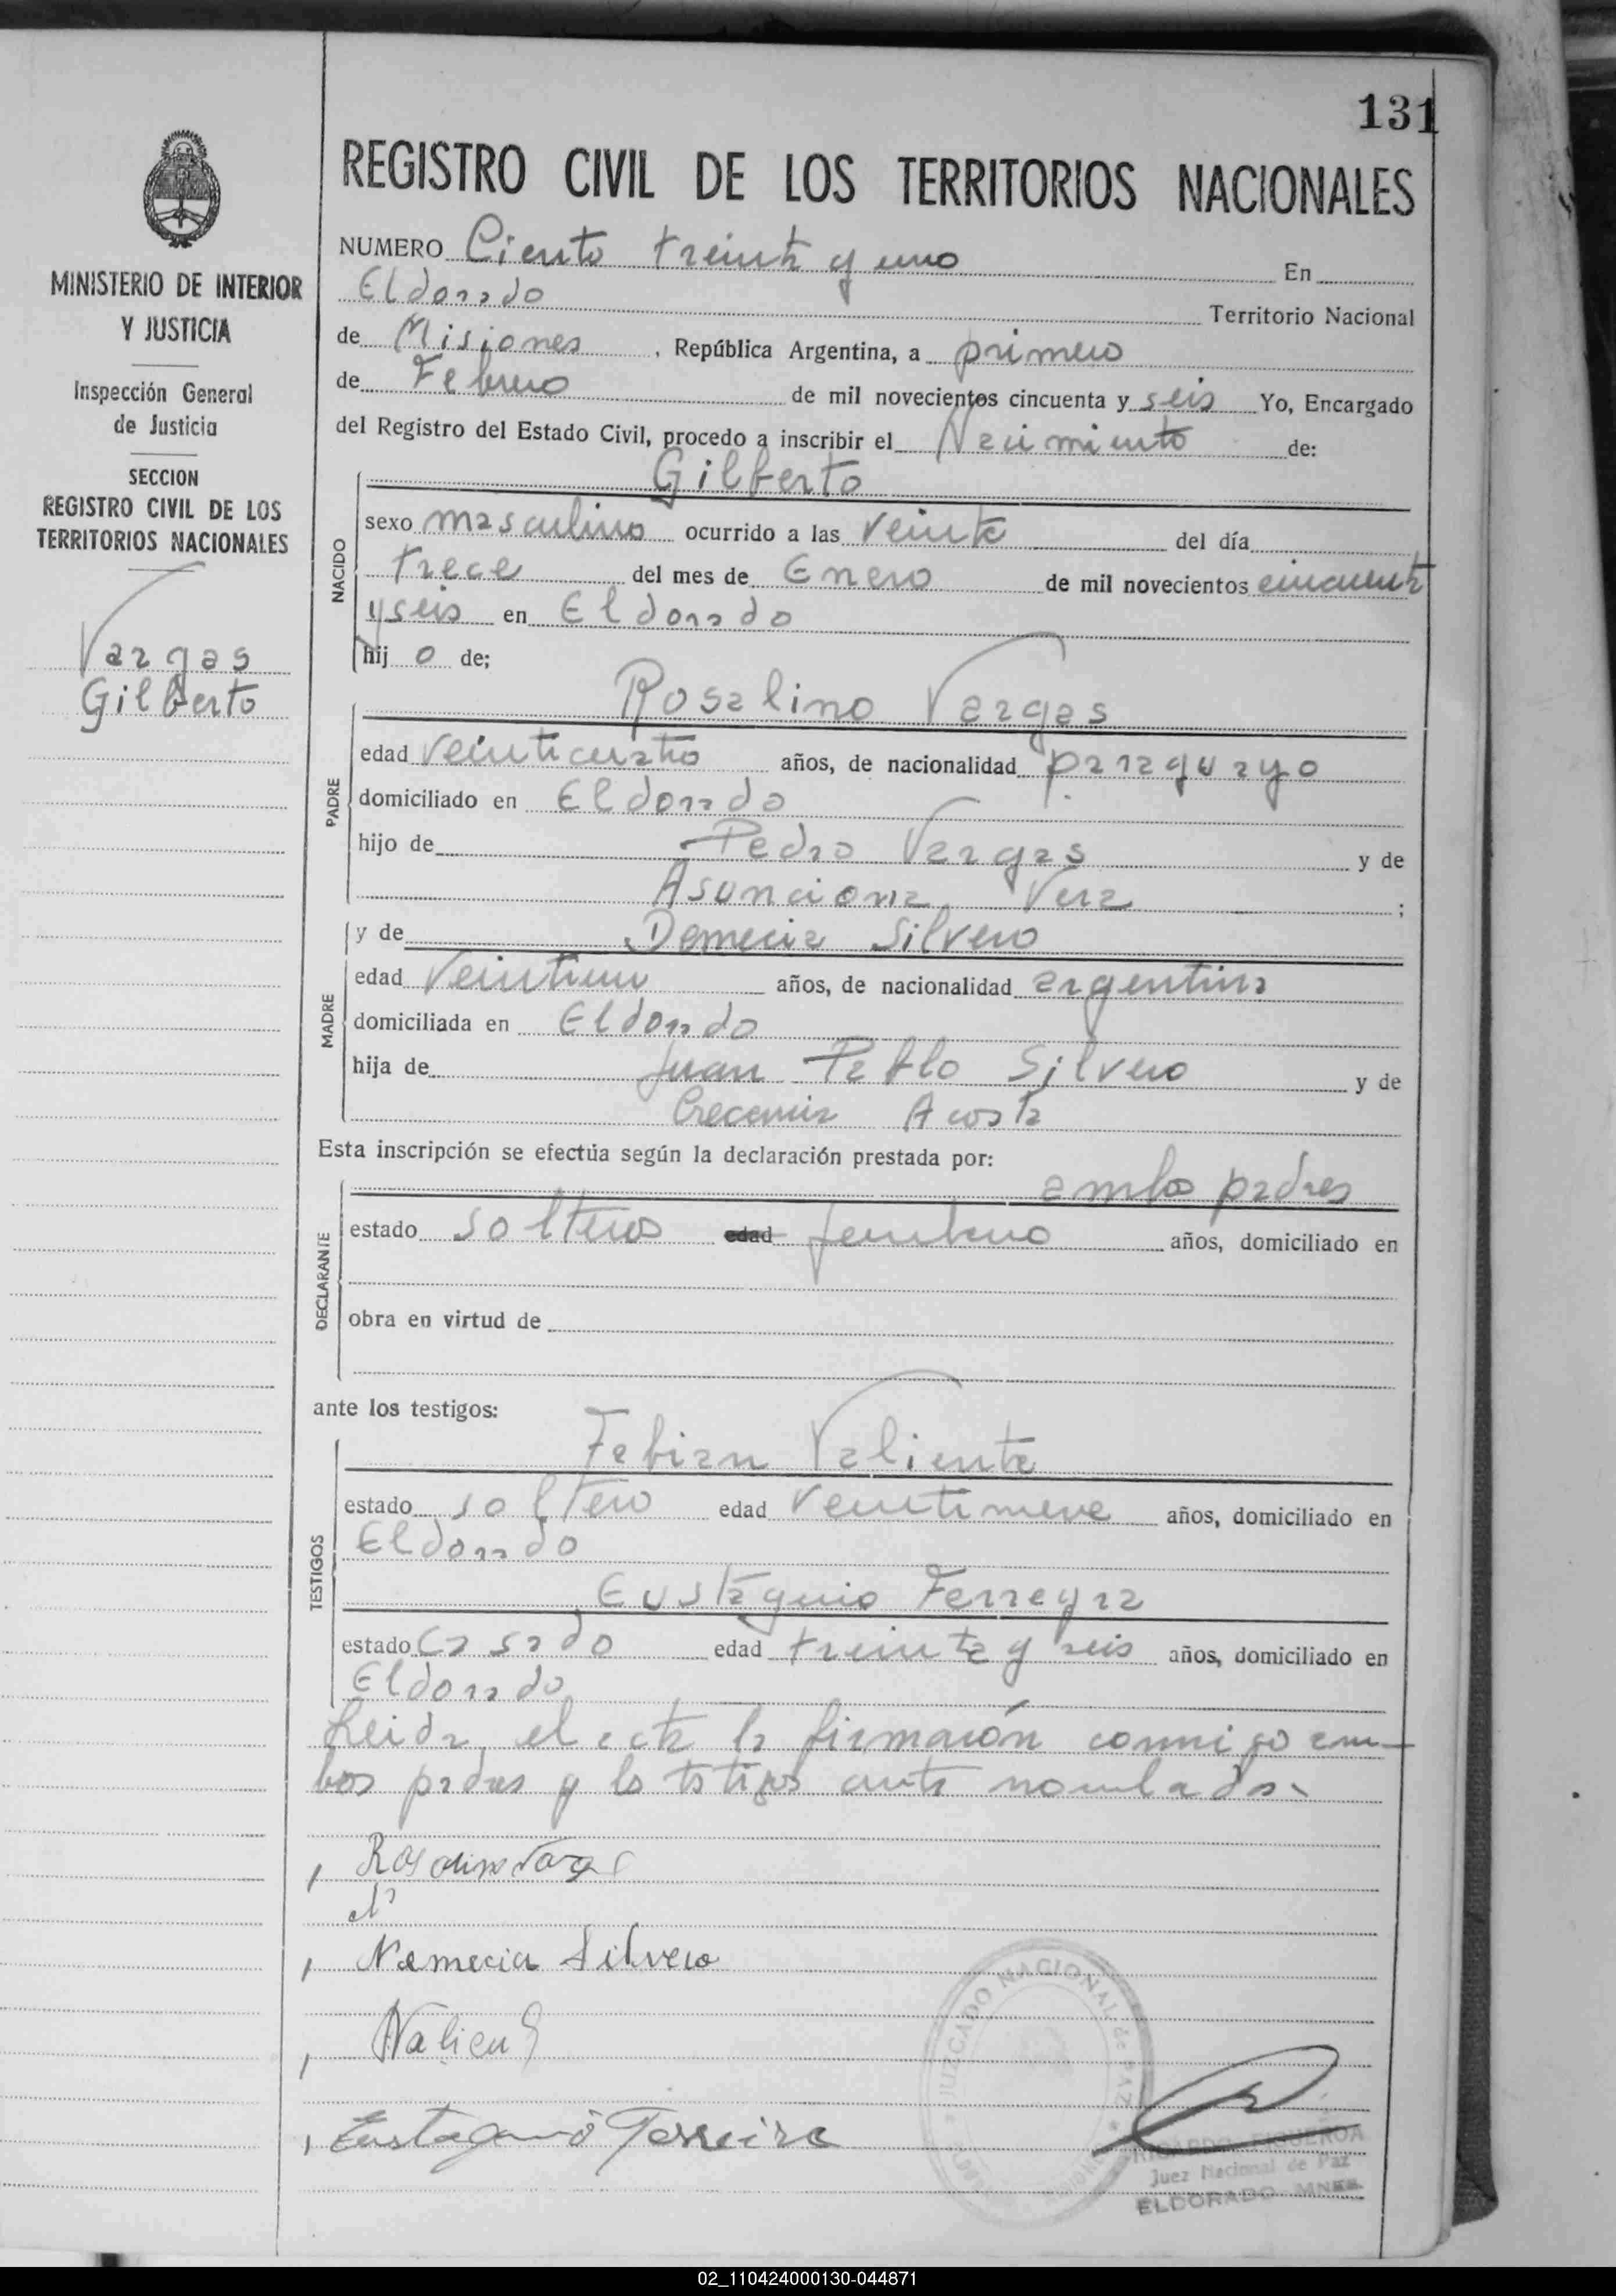 131
REGISTRO CIVIL DE LOS TERRITORIOS NACIONALES
MINISTERIO DE INTERIOR
Y JUSTICIA
Inspección General
de Justicia
SECCION
REGISTRO CIVIL DE LOS
TERRITORIOS NACIONALES
Vargas
Gilberto
NUMERO Ciento treinta y uno En
Eldorado Territorio Nacional
de Misiones, República Argentina, a primero
de Febrero de mil novecientos cincuenta y seis Yo, Encargado
del Registro del Estado Civil, procedo a inscribir el Nacimiento de:
Gilberto
NACIDO
sexo masculino ocurrido a las veinte del día
trece del mes de Enero de mil novecientos cincuenta
y seis en Eldorado
hij o de;
Rosalino Vargas
PADRE
edad veinticuatro años, de nacionalidad paraguayo
domiciliado en Eldorado
hijo de Pedro Vargas y de
Asunciona Vera ;
y de Demecia Silvero
MADRE
edad veintiun años, de nacionalidad argentina
domiciliada en Eldorado
hija de Juan Pablo Silvero y de
Acosta
Esta inscripción se efectúa según la declaración prestada por:
ambos padres
DECLARANTE
estado solteros edad años, domiciliado en
obra en virtud de
ante los testigos:
Fabian Valiente
TESTIGOS
estado soltero edad veintinueve años, domiciliado en
Eldorado
Eustaquio Ferreyra
estado casado edad treinta y seis años, domiciliado en
Eldorado
Leida el acta la firmarón conmigo am-
bos padres y los testigos ante nombrados
Rosalino Vargas
Nemecia Silvero
Eustaquio Ferreira
JUZGADO NACIONAL de PAZ
RICARDO FIGUEROA
Juez Nacional de Paz
ELDORADO - MNES.
02_110424000130-044871